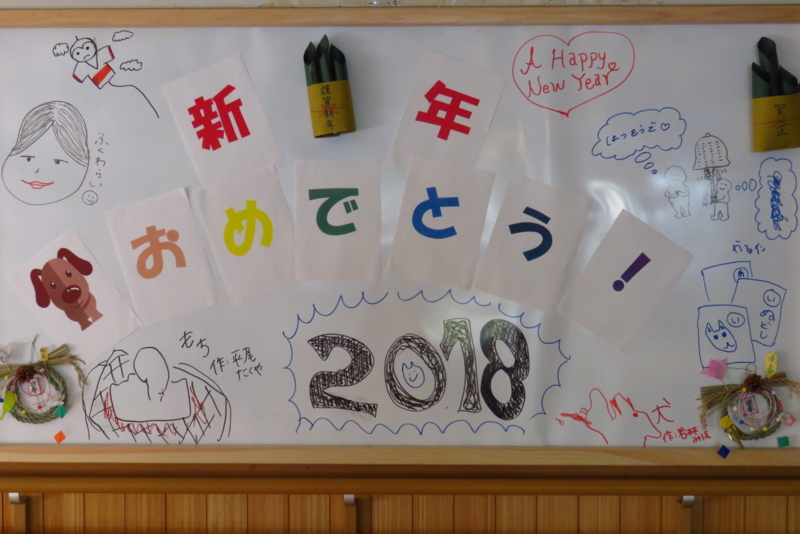 新年
おめでとう!
A Happy
New Year
謹賀新年
賀正
ふくわらい
はつもうで♡
かるた
もち
作:平尾
たくや
2018
犬
作:若林